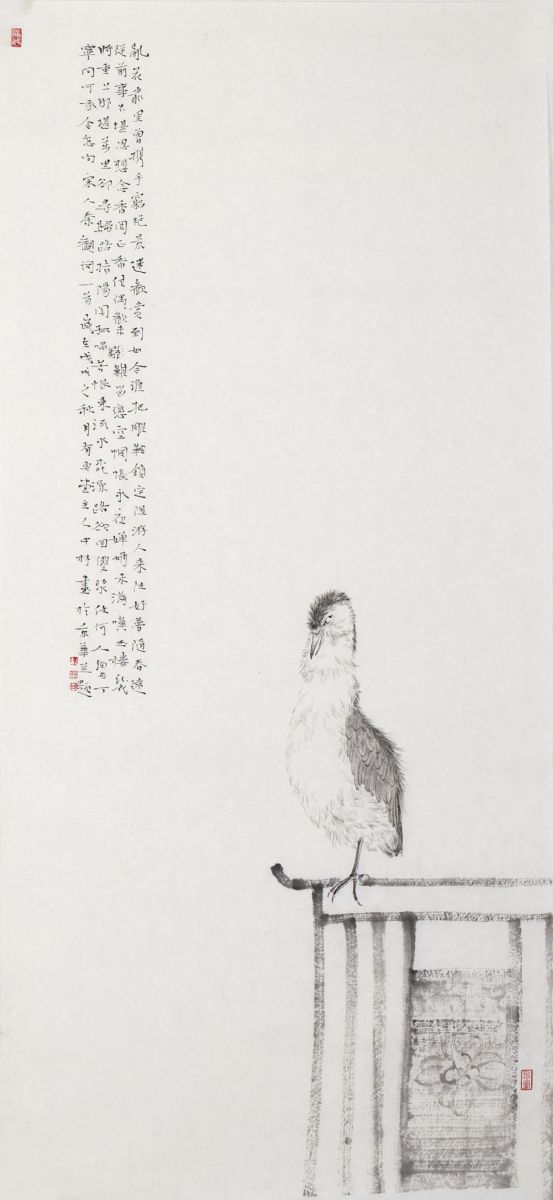 亂花叢里曾攜手窮艷景迷歡賞到如今誰把雕鞍鎖定阻游人來往好夢隨春遠
從前事不堪思想念香閨正杳佳偶歡未難留戀空惆悵永夜嬋娟未滿嘆玉樓幾
時重上那堪萬里卻尋歸路指陽關孤唱苦恨東流水桃源路欲回雙槳仗何人細與丁
寧問呵我今怎向宋人秦觀詞一首歲在戊戌之秋月有堂主人中畫於京華並題